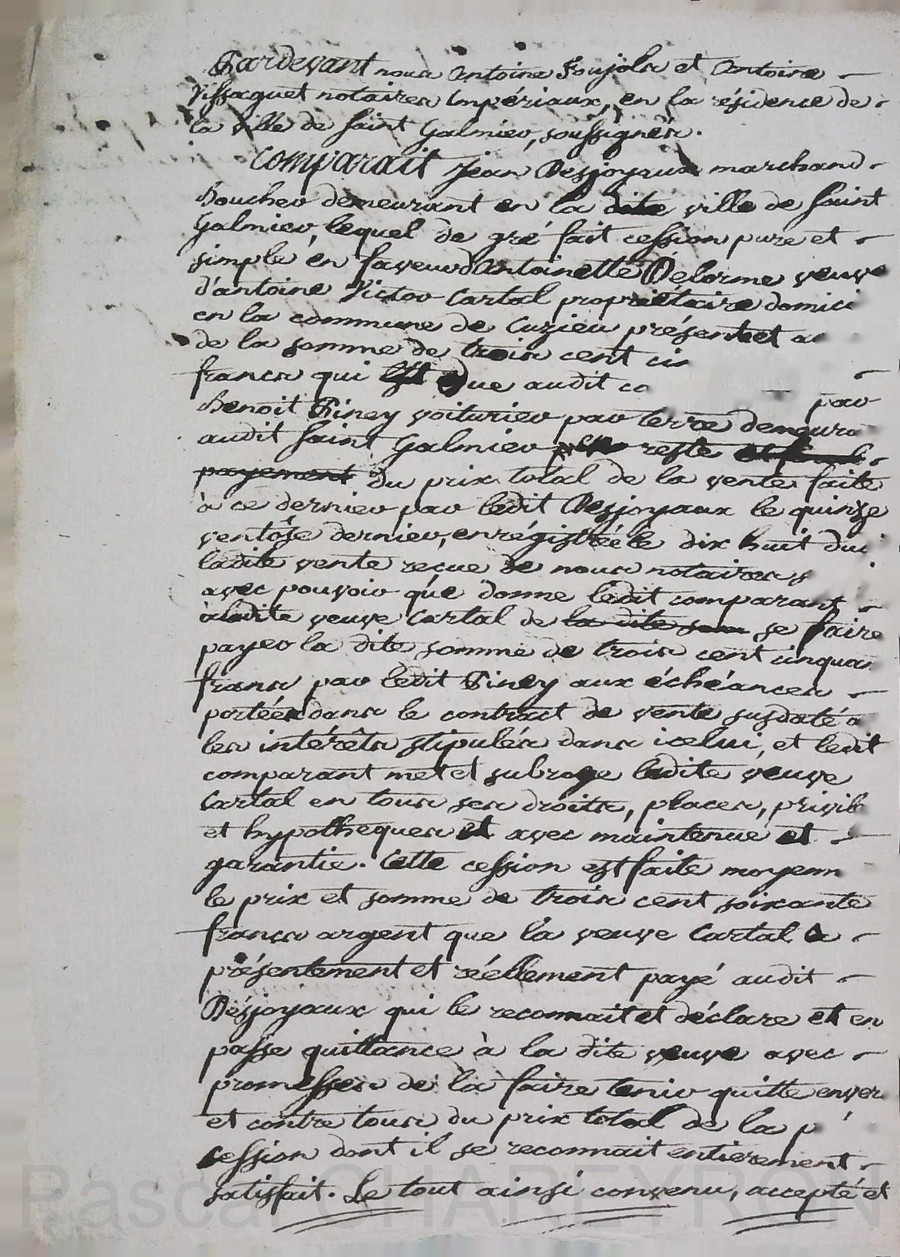 Pardevant nous Antoine Poujols et Antoine
Vissaguet notaires Impériaux, en la résidence de
la ville de Saint Galmier, soussignés.
Comparait Jean Desjoyaux marchand
boucher demeurant en la dite ville de Saint
Galmier, lequel de gré fait cession pure et
simple en faveur d'Antoinette Delorme veuve
d'antoine Victor Cartal propriétaire domici
en la commune de Cuzieu présente et a
de la somme de trois cent cin
francs qui est due audit co par
Benoit Finey voiturier par terre demeura
audit Saint Galmier reste et final
payement du prix total de la vente faite
à ce dernier par ledit Desjoyaux le quinze
ventôse dernier, enrégistrée le dix huit dui
ladite vente reçue de nous notaires
avec pouvoir que donne ledit comparant
à ladite veuve Cartal de la dite som se faire
payer la dite somme de trois cent cinquan
francs par ledit Finey aux échéances
portées dans le contract de vente susdaté a
les intérêts stipulés dans icelui, et ledit
comparant met et subroge ladite veuve
Cartal en tous ses droits, places, privilé
et hypotheques et avec maintenue et
garantie. Cette cession est faite moyenn
le prix et somme de trois cent soixante
francs argent que la veuve Cartal a
présentement et réellement payé audit
Désjoyaux qui le reconnait et déclare et en
passe quittance à la dite veuve avec
promesses de la faire tenir quitte enver
et contre tous du prix total de la p
cession dont il se reconnait entierement
satisfait. Le tout ainsi convenu, accepté et
Pascal CHAREYRON